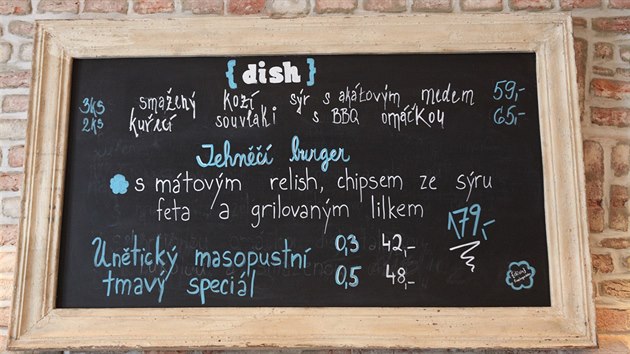 {dish}
3ks smažený kozí sýr s akátovým medem 59,-
2ks kuřecí souvlaki s BBQ omáčkou 65,-
Jehněčí burger
s mátovým relish, chipsem ze sýru
feta a grilovaným lilkem 179,-
Únětický masopustní 0,3 42,-
tmavý speciál 0,5 48,-
{dish}